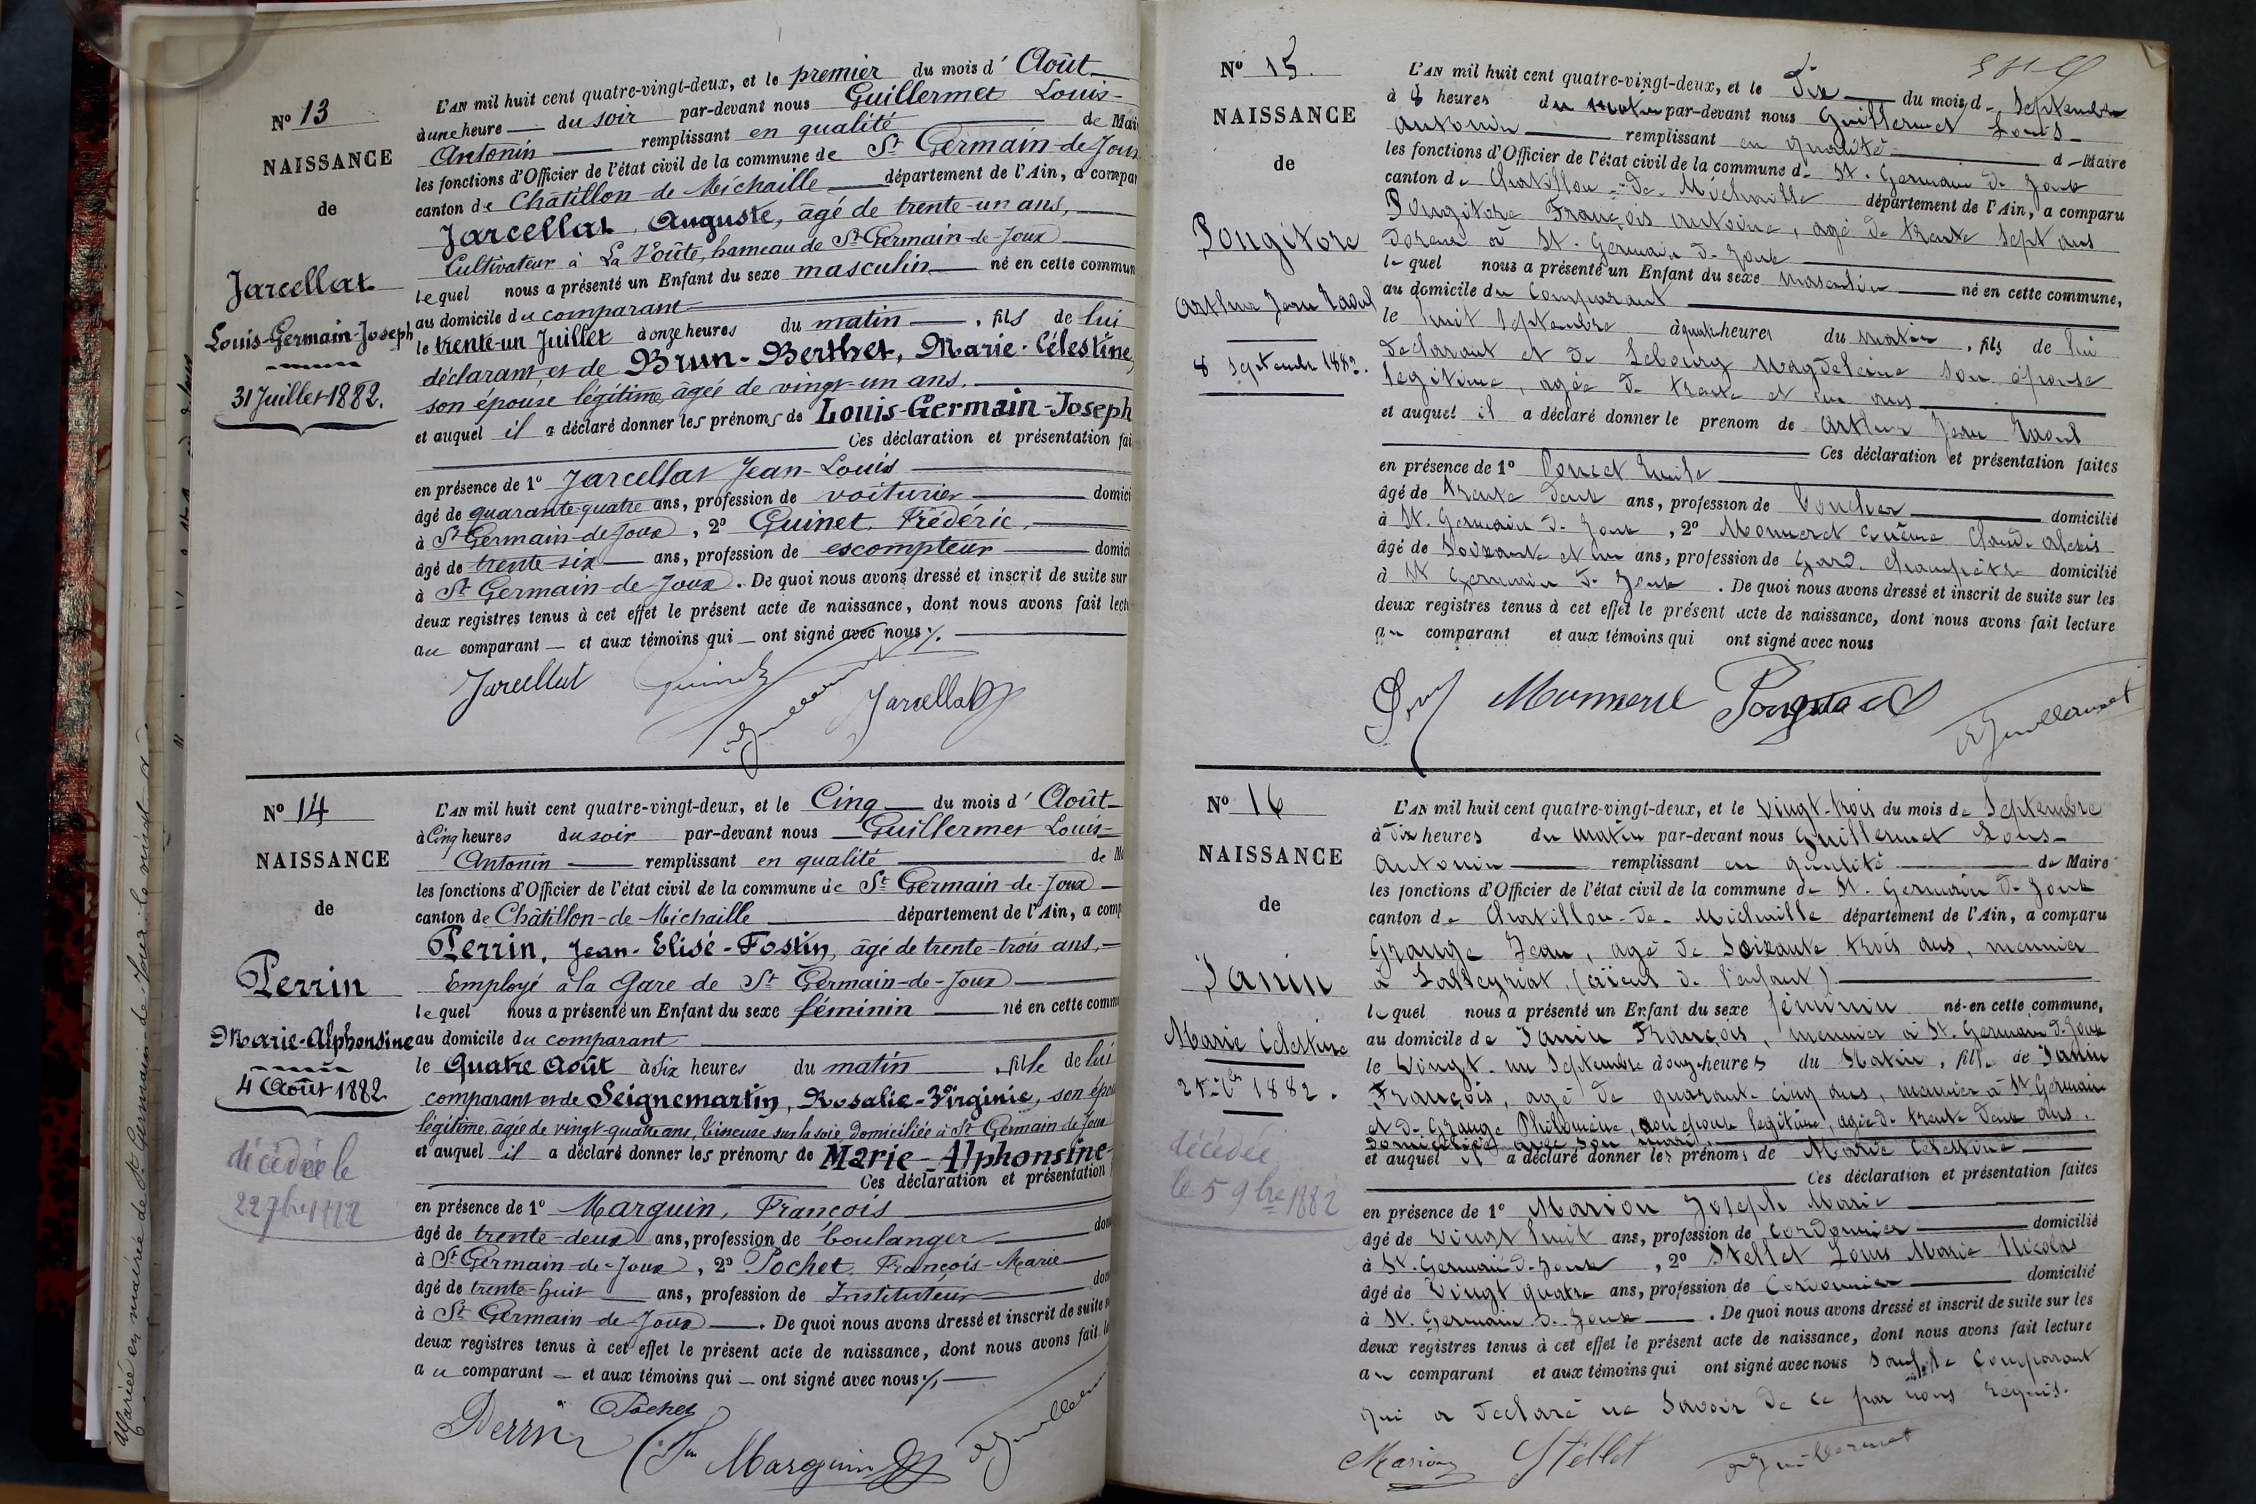 Nº 13
NAISSANCE
de
Jarcellat
Louis-Germain-Joseph
31 Juillet 1882.
L'AN mil huit cent quatre-vingt-deux, et le premier du mois d' Août
à une heure du soir par-devant nous Guillermet Louis-
Antonin remplissant en qualité de Mai
les fonctions d'Officier de l'état civil de la commune de St Germain-de-Joux
canton de Châtillon-de-Michaille département de l'Ain, a compar
Jarcellat, Auguste, âgé de trente-un ans,
Cultivateur à La Voûte, hameau de St Germain-de-Joux
lequel nous a présenté un Enfant du sexe masculin né en cette commun
au domicile du comparant
le trente-un Juillet à onze heures du matin, fils de lui
déclarant, et de Brun-Berthet, Marie-Célestine,
son épouse légitime, âgée de vingt-un ans.
et auquel il a déclaré donner les prénoms de Louis-Germain-Joseph
Ces déclaration et présentation fai
en présence de 1º Jarcellat Jean-Louis
âgé de quarante-quatre ans, profession de voiturier domici
à St Germain-de-Joux, 2º Guinet, Frédéric,
âgé de trente six ans, profession de escompteur domici
à St Germain-de-Joux. De quoi nous avons dressé et inscrit de suite sur
deux registres tenus à cet effet le présent acte de naissance, dont nous avons fait lectu
au comparant et aux témoins qui ont signé avec nous
Jarcellat Guinet Guillermet Jarcellat
Nº 14
NAISSANCE
de
Perrin
Marie-Alphonsine
4 Août 1882
décédée le
22 7bre 1882
L'AN mil huit cent quatre-vingt-deux, et le Cinq du mois d' Août
à Cinq heures du soir par-devant nous Guillermet Louis-
Antonin remplissant en qualité de M
les fonctions d'Officier de l'état civil de la commune de St Germain-de-Joux
canton de Châtillon-de-Michaille département de l'Ain, a comp
Perrin, Jean-Elisé-Fostin, âgé de trente-trois ans,
Employé à la Gare de St Germain-de-Joux
lequel nous a présenté un Enfant du sexe féminin né en cette commu
au domicile du comparant
le Quatre Août à dix heures du matin, fille de lui
comparant et de Seignemartin, Rosalie-Virginie, son épou
légitime, âgée de vingt-quatre ans, liseuse sur la soie, domiciliée à St Germain de Joux
et auquel il a déclaré donner les prénoms de Marie-Alphonsine-
Ces déclaration et présentation
en présence de 1º Marguin, François
âgé de trente-deux ans, profession de boulanger dom
à St Germain-de-Joux, 2º Pochet, François-Marie
âgé de trente-huit ans, profession de Instituteur dom
à St Germain-de-Joux. De quoi nous avons dressé et inscrit de suite s
deux registres tenus à cet effet le présent acte de naissance, dont nous avons fait le
au comparant et aux témoins qui ont signé avec nous
Perrin Pochet Marguin Guillermet
Mariée en mairie de St Germain-de-Joux
Nº 15.
NAISSANCE
de
Pougitore
Arthur Jean Raoul
8 Septembre 1882.
L'AN mil huit cent quatre-vingt-deux, et le Dix du mois d- Septembre
à 8 heures du matin par-devant nous Guillermet Louis-
Antonin remplissant en qualité d- Maire
les fonctions d'Officier de l'état civil de la commune d- St. Germain d- Joux
canton d- Chatillon-de-Michaille département de l'Ain, a comparu
Pougitore François antoine, agé de trente sept ans
Doreur à St. Germain d- Joux
lequel nous a présenté un Enfant du sexe masculin né en cette commune,
au domicile du Comparant
le huit Septembre à quatre heures du matin, fils de lui
declarant et de Lebourg Magdeleine son épouse
légitime, agée de trente et un ans
et auquel il a déclaré donner le prenom de Arthur Jean Raoul
Ces déclaration et présentation faites
en présence de 1º Poncet Emile
âgé de trente deux ans, profession de Boucher domicilié
à St. Germain d- Joux, 2º Monneret Claude Alexis
âgé de Soixante et un ans, profession de Garde Champêtre domicilié
à St Germain d- Joux. De quoi nous avons dressé et inscrit de suite sur les
deux registres tenus à cet effet le présent acte de naissance, dont nous avons fait lecture
au comparant et aux témoins qui ont signé avec nous
Monneret Pougitore Guillermet
Nº 16
NAISSANCE
de
Janin
Marie Celestine
21 7bre 1882.
décédée
le 5 9bre 1882
L'AN mil huit cent quatre-vingt-deux, et le vingt-trois du mois de Septembre
à Dix heures du matin par-devant nous Guillermet Louis-
Antonin remplissant en qualité de Maire
les fonctions d'Officier de l'état civil de la commune d- St. Germain d- Joux
canton d- Chatillon-de-Michaille département de l'Ain, a comparu
Grange Jean, agé de Soixante trois ans, meunier
à Lalleyriat, (aïeul de l'enfant)
lequel nous a présenté un Enfant du sexe féminin né-en cette commune,
au domicile de Janin François, meunier à St. Germain d- Joux
le Vingt-un Septembre à onze heures du Matin, fille de Janin
François, agé de quarante-cinq ans, meunier à St Germain
et de Grange Philomène, son épouse legitime, agée de trente deux ans,
domiciliée avec son mari.
et auquel il a déclaré donner les prénoms de Marie Celestine
Ces déclaration et présentation faites
en présence de 1º Marion Joseph Marie
âgé de vingt huit ans, profession de cordonnier domicilié
à St. Germain d- Joux, 2º Stellet Louis Marie Nicolas
âgé de Vingt quatre ans, profession de Cordonnier domicilié
à St. Germain d- Joux. De quoi nous avons dressé et inscrit de suite sur les
deux registres tenus à cet effet le présent acte de naissance, dont nous avons fait lecture
au comparant et aux témoins qui ont signé avec nous Sauf le Comparant
qui a declaré ne Savoir de ce par nous requis.
Marion Stellet Guillermet